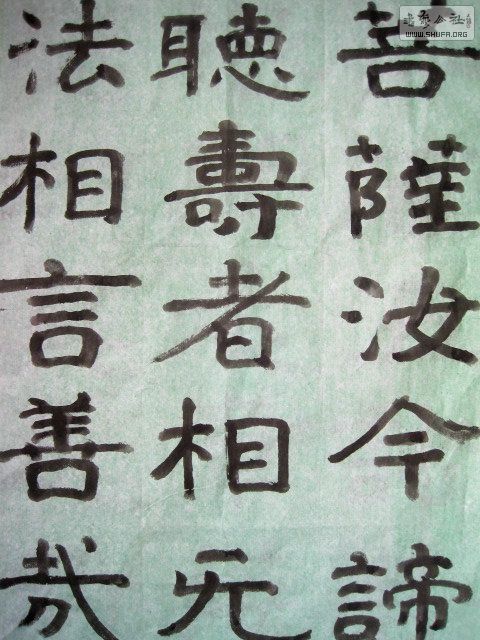 菩薩汝今諦
聽壽者相无
法相言善哉
WWW.SHUFA.ORG